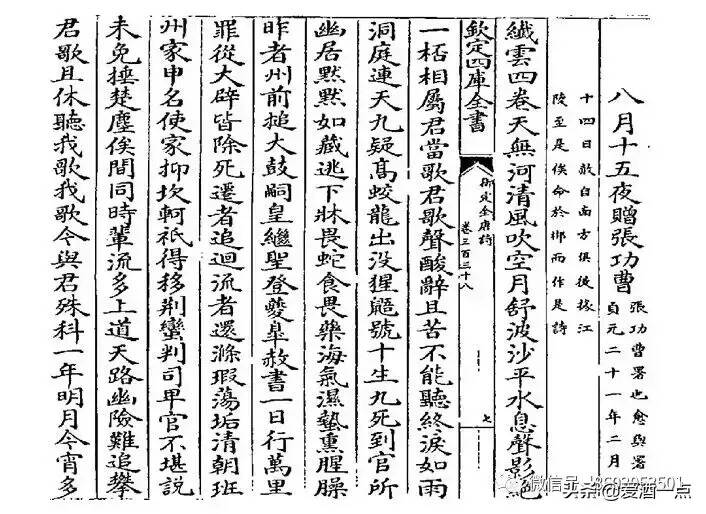 八月十五夜贈張功曹
張功曹署也愈與署
貞元二十一年二月
十四日赦自南方俱徙掾江
陵至是俟命於郴而作是詩
纎雲四卷天無河清風吹空月舒波沙平水息聲影絶
欽定四庫全書
御定全唐詩
卷三百三十八
七
一桮相屬君當歌君歌聲酸辭且苦不能聽終淚如雨
洞庭連天九疑髙蛟龍出没猩鼯號十生九死到官所
幽居黙黙如藏逃下牀畏蛇食畏藥海氣濕蟄熏腥臊
昨者州前搥大鼓嗣皇繼聖登夔臯赦書一日行萬里
罪從大辟皆除死遷者追迴流者還滌瑕蕩垢清朝班
州家申名使家抑坎軻祇得移荆蠻判司卑官不堪說
未免捶楚塵埃間同時輩流多上道天路幽險難追攀
君歌且休聽我歌我歌今與君殊科一年明月今宵多
微信号
头条@爱酒一点